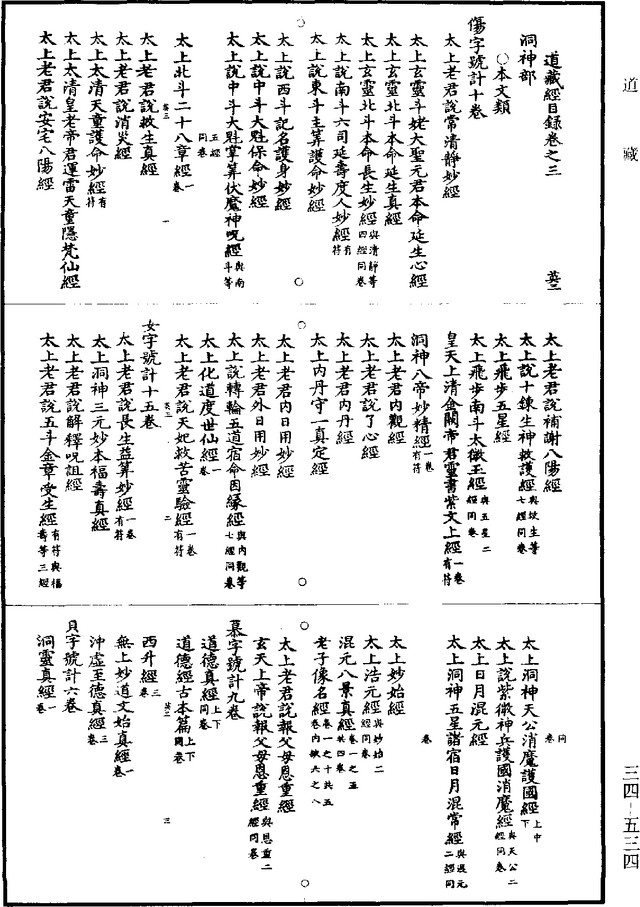 道藏
道藏經目錄卷之三
英二
洞神部
○本文類
傷字號計十卷
太上老君說常清靜妙經
太上玄靈斗姥大聖元君本命延生心經
太上玄靈北斗本命延生真經
太上玄靈北斗本命長生妙經與清靜等四經同卷
太上說南斗六司延壽度人妙經有符
太上說東斗主算護命妙經
太上說西斗記名護身妙經
太上說中斗大魁保命妙經
太上說中斗大魁掌算伏魔神呪經與南斗等五經同卷
太上北斗二十八章經一卷
英三 一
太上老君說救生真經
太上老君說消災經
太上太清天童護命妙經有符
太上太清皇老帝君運雷天童隱梵仙經
太上老君說安宅八陽經
太上老君說補謝八陽經
太上說十鍊生神救護經與救生等七經同卷
太上飛步五星經
太上飛步南斗太微玉經與五星二經同卷
皇天上清金闕帝君靈書紫文上經一卷有符
洞神八帝妙精經一卷有符
太上老君內觀經
太上老君說了心經
太上老君內丹經
太上內丹守一真定經
太上老君內日用妙經
太上老君外日用妙經
太上說轉輪五道宿命因緣經與內觀等七經同卷
太上化道度世仙經一卷
太上老君說天妃救苦靈驗經一卷有符
英三 二
女字號計十五卷
太上老君說長生益算妙經一卷有符
太上洞神三元妙本福壽真經
太上老君說解釋呪詛經
太上老君說五斗金章受生經有符與福壽等三經
同卷
太上洞神天公消魔護國經上中下
太上說紫微神兵護國消魔經與天公二經同卷
太上日月混元經
太上洞神五星諸宿日月混常經與混元二經同
卷
太上妙始經
太上浩元經與妙始二經同卷
混元八景真經卷一之五共四卷
老子像名經卷一之十共五卷內缺六之八
太上老君說報父母恩重經
玄天上帝說報父母恩重經與恩重二經同卷
慕字號計九卷
道德真經上下同卷
道德經古本篇上下同卷
西升經三卷
英三 三
無上妙道文始真經一卷
沖虛至德真經三卷
貞字號計六卷
洞靈真經一卷
三四—五三四